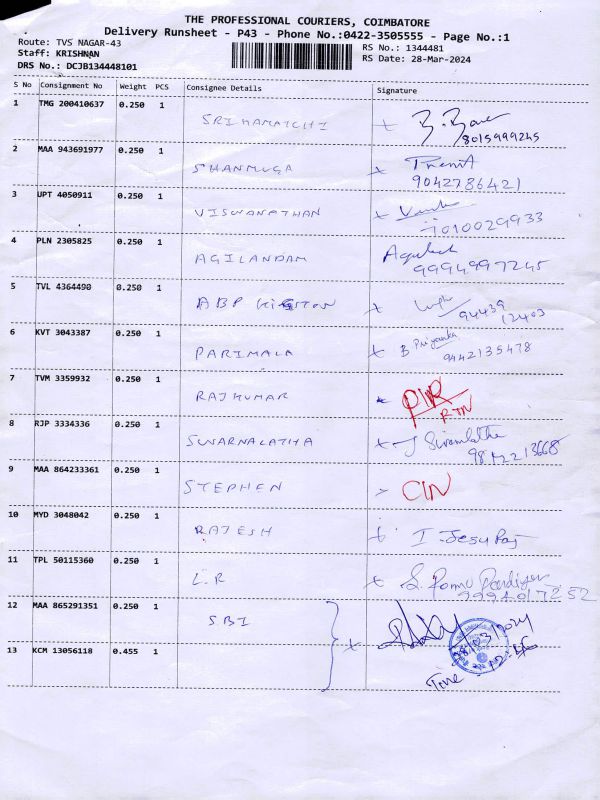 THE PROFESSIONAL COURIERS, COIMBATORE
Delivery Runsheet - P43 - Phone No.:0422-3505555 - Page No.:1
Route: TVS NAGAR-43 RS No.: 1344481
Staff: KRISHNAN RS Date: 28-Mar-2024
DRS No.: DCJB134448101
S No Consignment No Weight PCS Consignee Details Signature
1 TMG 200410637 0.250 1 SRI KAMATCHI
8015999245
2 MAA 943691977 0.250 1 SHANMUGA
9042786421
3 UPT 4050911 0.250 1 VISWANATHAN
4 PLN 2305825 0.250 1 AGILANDAM
9994997245
5 TVL 4364490 0.250 1 ABP KINGSTON
94439
12403
6 KVT 3043387 0.250 1 PARIMALA B Priyanka
9442135478
7 TVM 3359932 0.250 1 RAJKUMAR
RTN
8 RJP 3334336 0.250 1 SWARNALATHA
9 MAA 864233361 0.250 1 STEPHEN
10 MYD 3048042 0.250 1 RAJESH I. Jesu Raj
11 TPL 50115360 0.250 1 L.R
9994017252
12 MAA 865291351 0.250 1 SBI
28/03/2024
13 KCM 13056118 0.455 1
Time